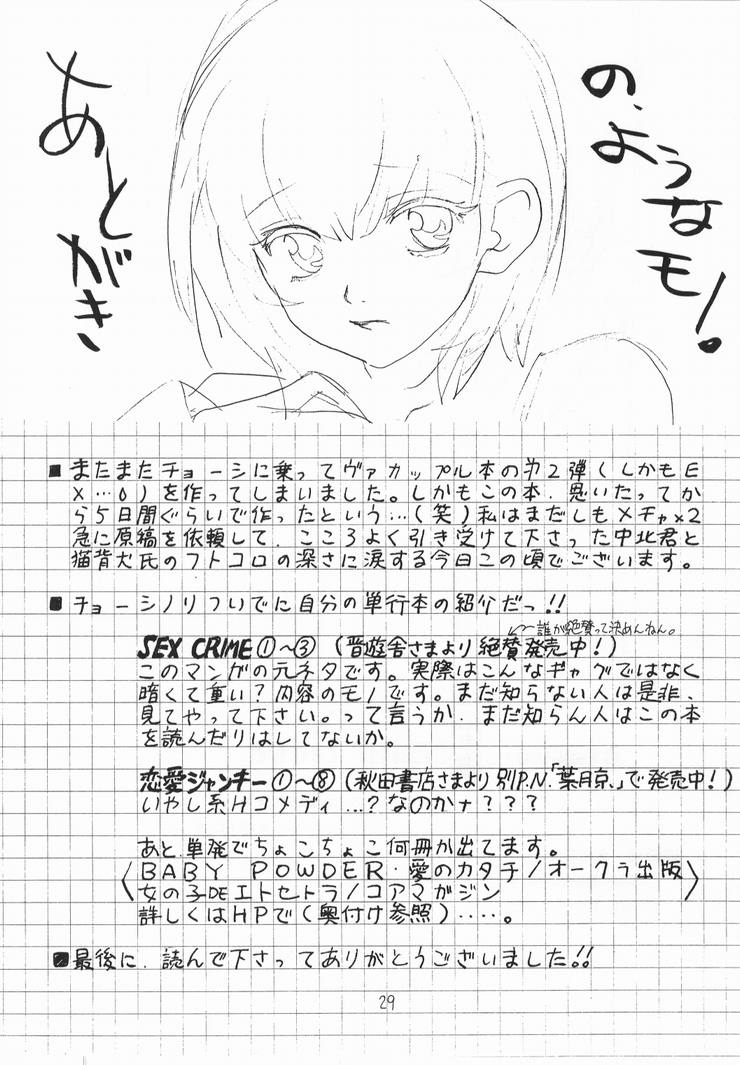 あとがき
の、ようなモノ。
■またまたチョーシに乗ってヴァカップル本の第2弾(しかもE
X…0)を作ってしまいました。しかもこの本、思いたってか
ら5日間ぐらいで作ったという…(笑)私はまだしもメチャ×2
急に原稿を依頼して、こころよく引き受けて下さった中北君と
猫背犬氏のフトコロの深さに涙する今日この頃でございます。
■チョーシノリついでに自分の単行本の紹介だっ!!
誰が絶賛って決めんねん。
SEX CRIME①〜③(晋遊舎さまより絶賛発売中!)
このマンガの元ネタです。実際はこんなギャグではなく
暗くて重い?内容のモノです。まだ知らない人は是非、
見てやって下さい。って言うか、まだ知らん人はこの本
を読んだりはしてないか。
恋愛ジャンキー①〜⑧(秋田書店さまより別P.N.「葉月京、」で発売中!)
いやし系Hコメディ…?なのかナ???
あと、単発でちょこちょこ何冊か出てます。
〈BABY POWDER・愛のカタチ/オークラ出版
女の子DEエトセトラ/コアマガジン〉
詳しくはHPで(奥付け参照)‥‥。
■最後に、読んで下さってありがとうございました!!
29